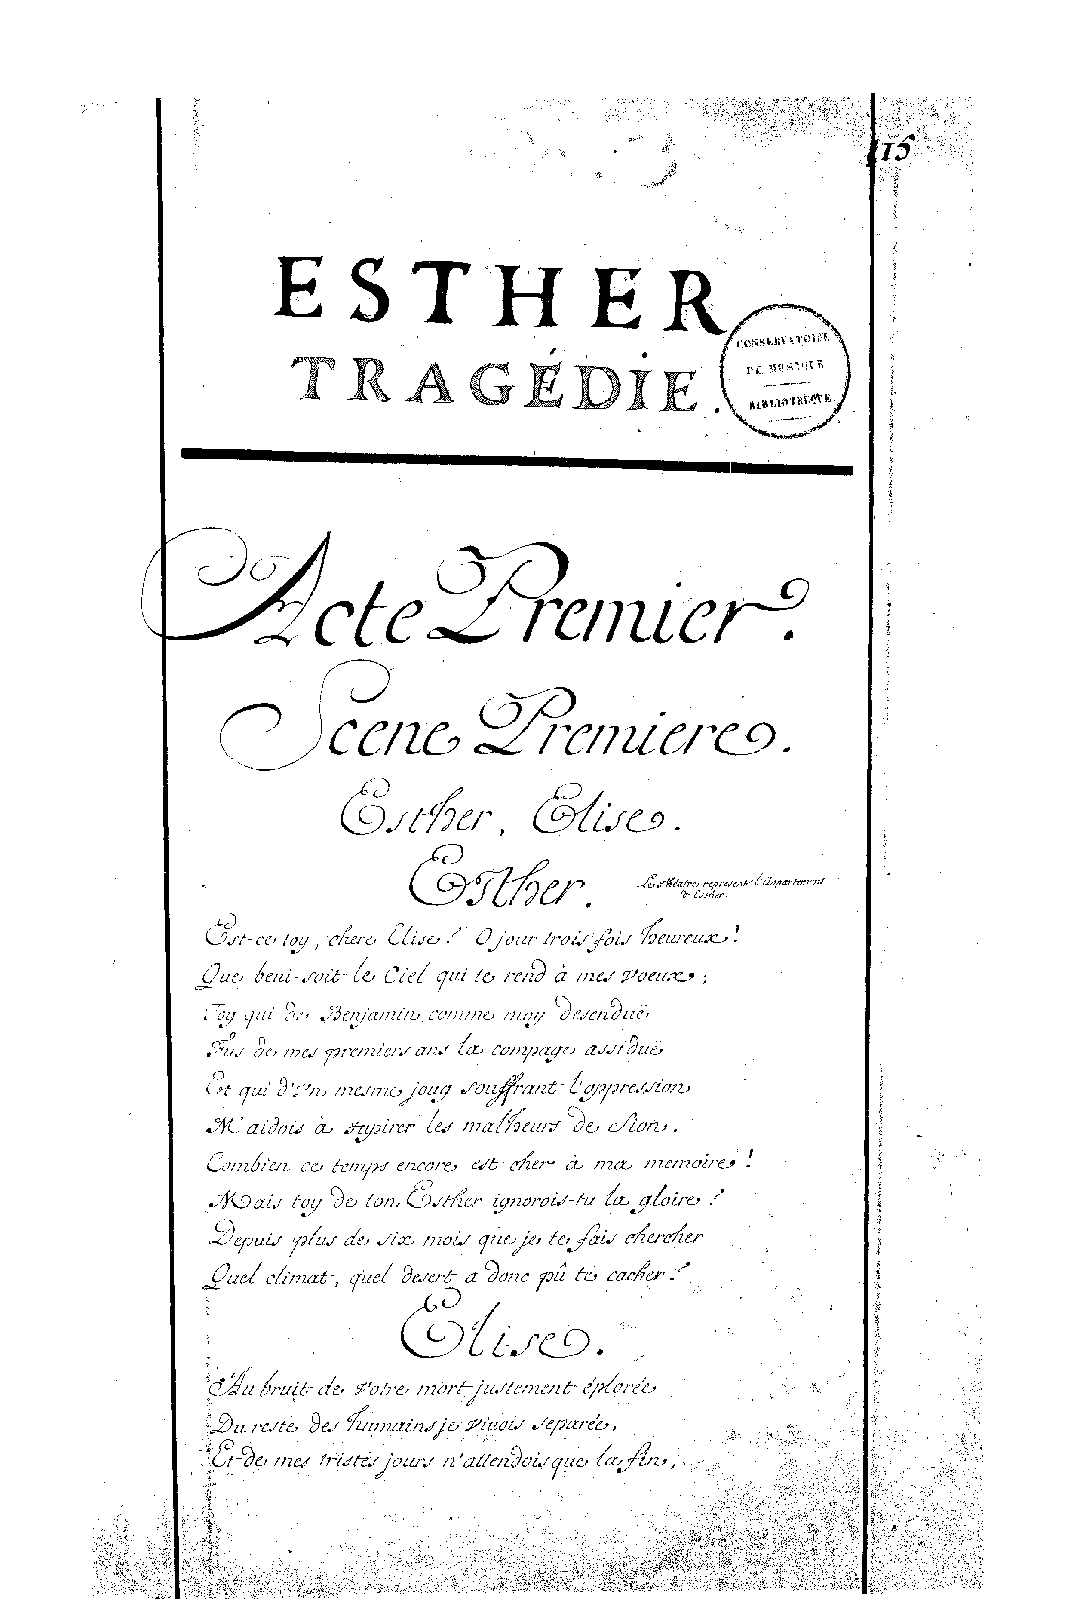 115
ESTHER
TRAGÉDIE.
CONSERVATOIRE
DE MUSIQUE
BIBLIOTHEQUE
Acte Premier.
Scene Premiere.
Esther, Elise.
Esther.
Le théatre represente l'Apartement
d'Esther.
Est-ce toy, chere Elise? O jour trois fois heureux!
Que beni-soit le Ciel qui te rend à mes voeux;
Toy qui de Benjamin comme moy desenduë
Fus de mes premiers ans la compage assiduë
Et qui d'Vn mesme joug souffrant l'oppression
M'aidois à supirer les malheurs de Sion.
Combien ce temps encore est cher à ma memoire!
Mais toy de ton Esther ignorois-tu la gloire?
Depuis plus de six mois que je te fais chercher
Quel climat, quel desert a donc pû te cacher?
Elise.
Au bruit de votre mort justement éplorée
Du reste des humains je vivois separée,
Et de mes tristes jours n'attendois que la fin,